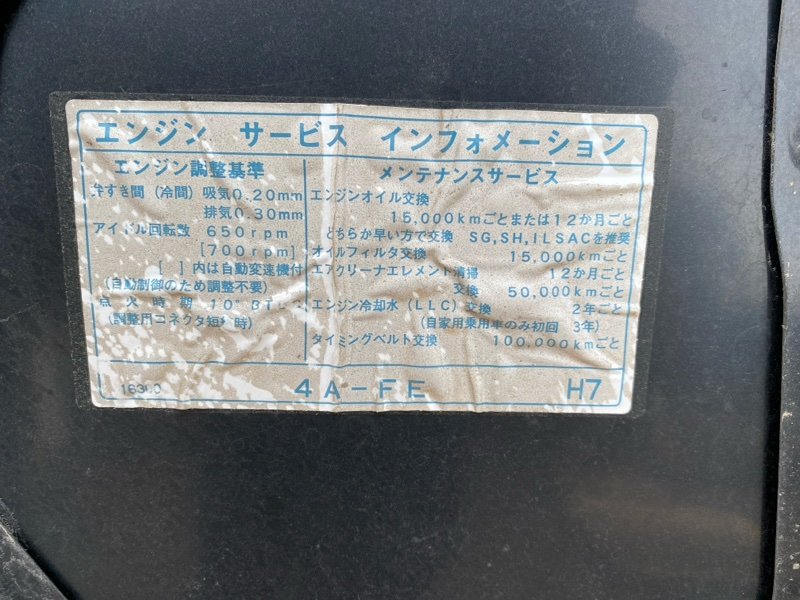 エンジン サービス インフォメーション
エンジン調整基準
弁すき間（冷間）吸気0.20mm
排気0.30mm
アイドル回転数 650rpm
[700rpm]
[ ]内は自動変速機付
(自動制御のため調整不要)
点火時期 10°
(調整用コネクタ短 時)
メンテナンスサービス
エンジンオイル交換
15,000kmごとまたは12か月ごと
どちらか早い方で交換 SG,SH,ILSACを推奨
オイルフィルタ交換 15,000kmごと
エアクリーナエレメント清掃 12か月ごと
交換 50,000kmごと
エンジン冷却水(LLC)交換 2年ごと
(自家用乗用車のみ初回 3年)
タイミングベルト交換 100,000kmごと
4A-FE H7